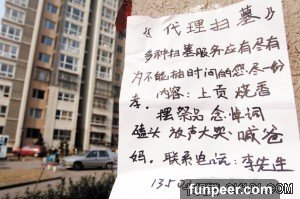 《代理扫墓》
多种扫墓服务应有尽有
为不能抽时间的您尽一份
孝。内容：上贡 烧香
摆祭品 念悼词
磕头 放声大哭 喊爸
妈。联系电话：李先生
135
funpeer.com